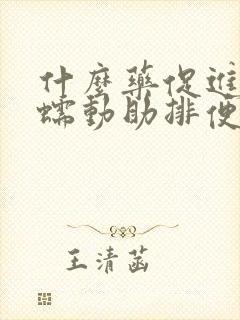 什麼藥促進
蠕動助排便
王清菡